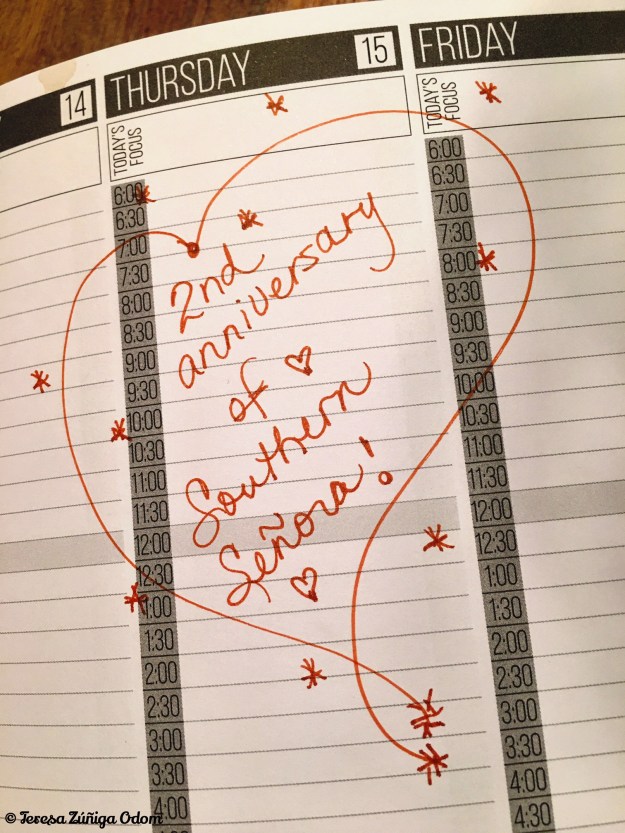 14
THURSDAY 15
TODAY'S
FOCUS
6:00
6:30
7:00
7:30
8:00
8:30
9:00
9:30
10:00
10:30
11:00
11:30
12:00
12:30
1:00
1:30
2:00
2:30
3:00
3:30
4:00
2nd
anniversary
of
Southern
Señora!
FRIDAY
TODAY'S
FOCUS
6:00
6:30
7:00
7:30
8:00
8:30
9:00
9:30
10:00
10:30
11:00
11:30
12:00
12:30
1:00
1:30
2:00
2:30
3:00
3:30
4:00
4:30
© Teresa Zúñiga Odom